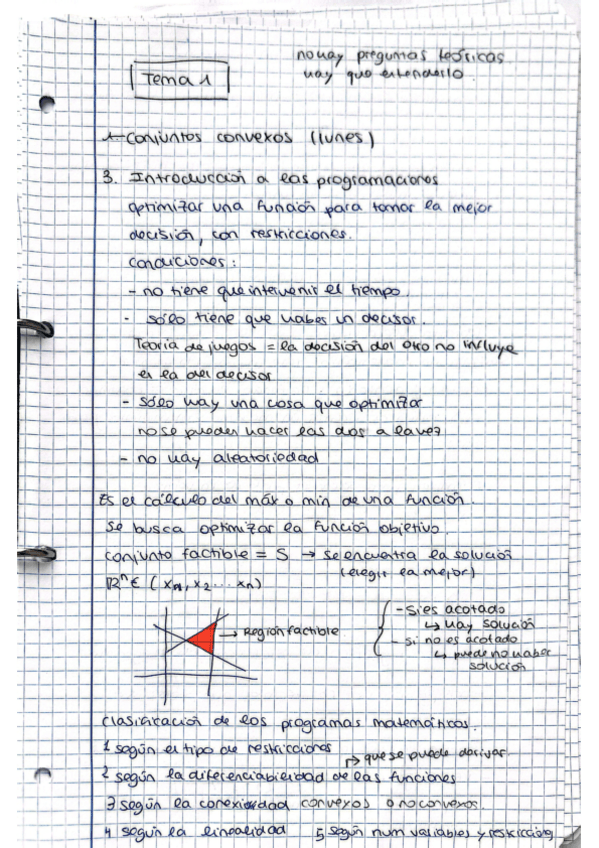 no hay preguntas teóricas
hay que entenderlo
Tema 1
1- Conjuntos convexos (lunes)
3. Introducción a las programaciones
optimizar una función para tomar la mejor
decisión, con restricciones.
condiciones:
- no tiene que intervenir el tiempo.
- sólo tiene que haber un decisor.
Teoría de juegos = la decisión del otro no influye
en la del decisor
- sólo hay una cosa que optimizar
no se pueden hacer las dos a la vez
- no hay aleatoriedad
Es el cálculo del máx o min de una función.
se busca optimizar la función objetivo.
conjunto factible = S → se encuentra la solución
(elegir la mejor)
ℝⁿ ∈ (x₁, x₂ ... xₙ)
→ Región factible
- Si es acotado
↳ hay solución
- si no es acotado
↳ puede no haber
solución
clasificación de los programas matemáticos.
1 según el tipo de restricciones
↱ que se puede derivar.
2 según la diferenciabilidad de las funciones
3 según la conexividad convexos o no convexos.
4 según la linealidad 5 según num variables y restricciones